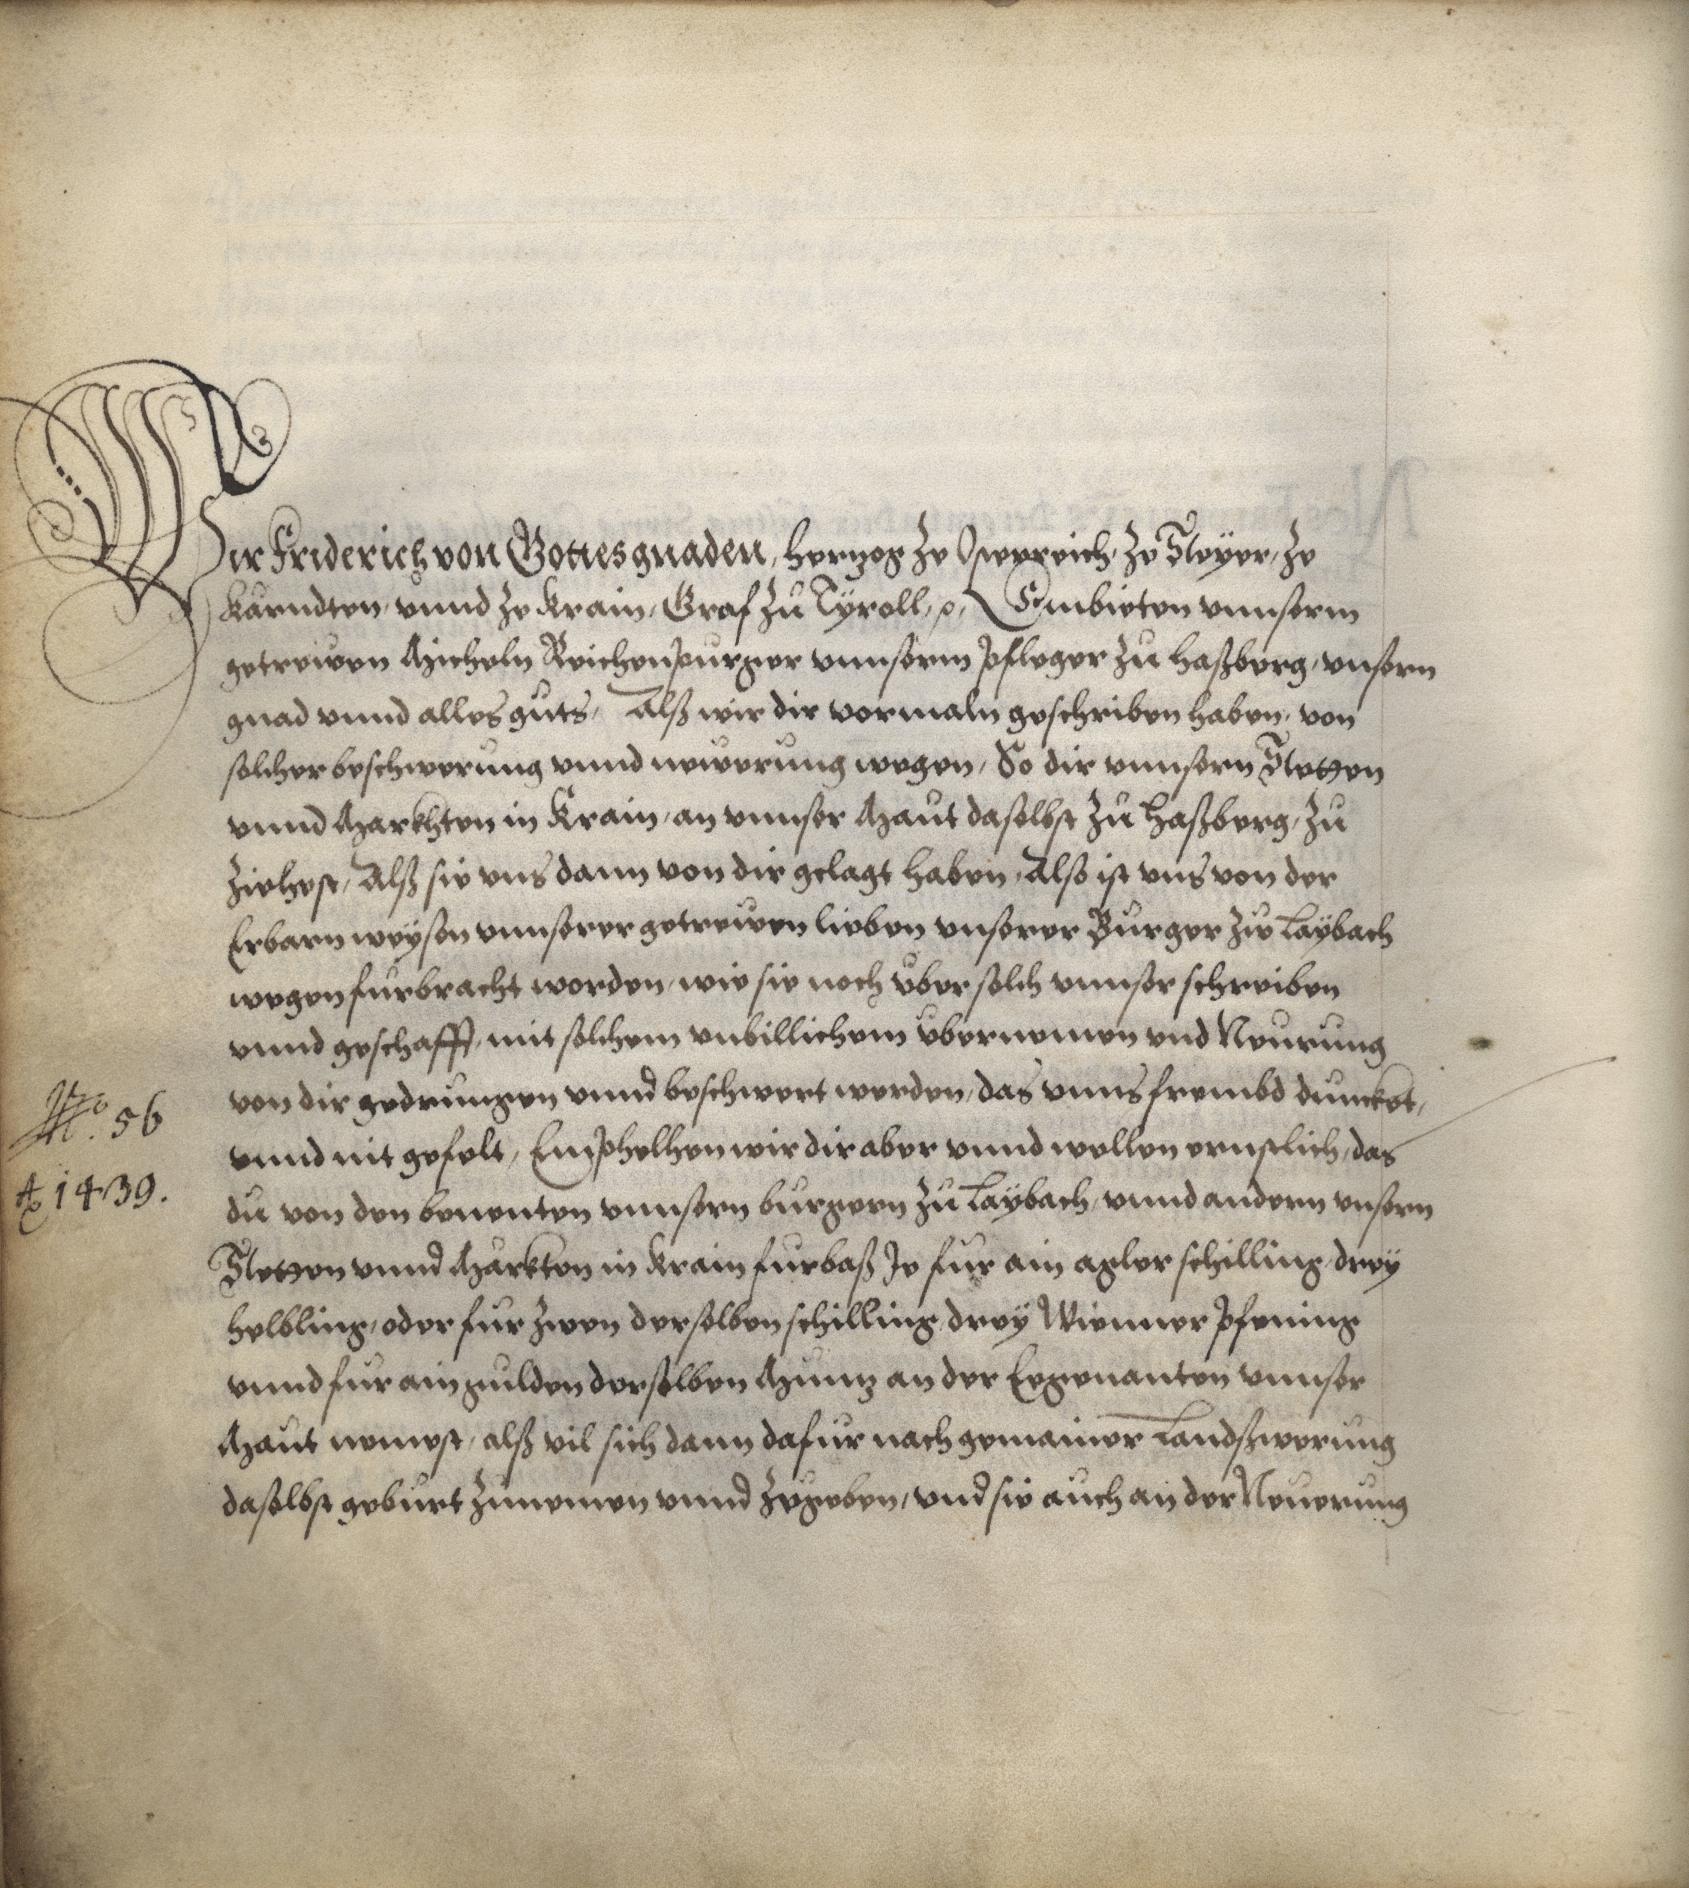 Wir Friderich von Gottes gnaden, Hertzog ze Osterreich, ze Steyer, ze
Kärndten, vnnd ze Krain, Graf zu Tÿroll, ꝛc, Embieten vnnserm
getrewen Micheln Reichenpurger vnnserm Pfleger zu Haßberg, vnsern
gnad vnnd alles guts, Alß wir dir vormaln geschriben haben, von
solcher beschwerung vnnd newerung wegen, So dir vnnsern Stetten
vnnd Markhten in Krain, an vnnser Maut daselbst zu Haßberg, zu
ziehest, Alß sie vns dann von dir gelagt haben, Alß ist vns von der
Erbarn weysen vnnserer getrewen lieben vnserer Burger zue Laÿbach
wegen furbracht worden, wie sie noch vber solch vnnser schreiben
vnnd geschafft, mit solchem vnbillichem vbernemen vnd Neurung
von dir gedrungen vnnd beschwert werden, das vnns frembd duncket,
vnnd nit gefelt, Emphelhen wir dir aber vnnd wellen ernstlich, das
du von den benenten vnnsern burgern zu Laÿbach, vnnd andern vnsern
Stetten vnnd Markten in Krain furbaß Je fur ain agler schilling, dreÿ
helbling, oder fur zwen derselben schilling, dreÿ Wienner Pfening
vnnd fur ain gulden derselben Munz an der Eegenanten vnnser
Maut nemest, alß vil sich dann dafur nach gemainer Landßwerung
daselbst geburt zunemen vnnd zegeben, vnd sie auch an der Neuerung
No. 56
Ao 1439.